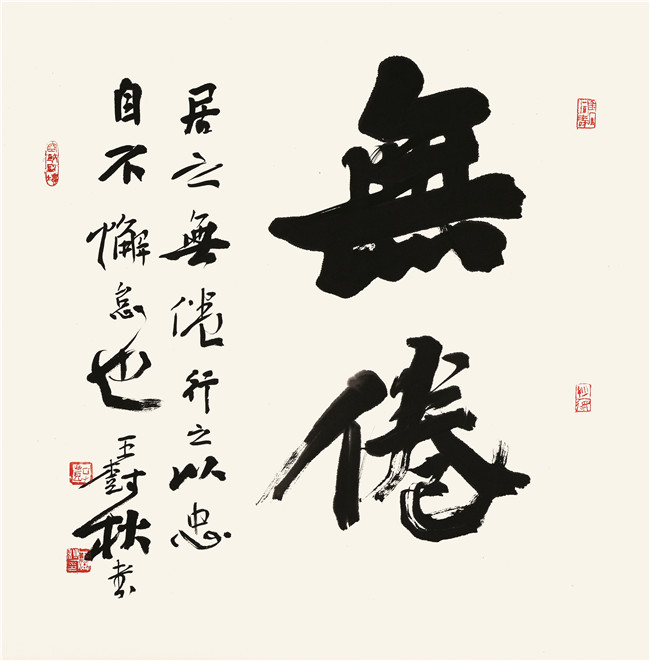 無倦
居之無倦行之以忠
自不懈怠也 王樹秋書